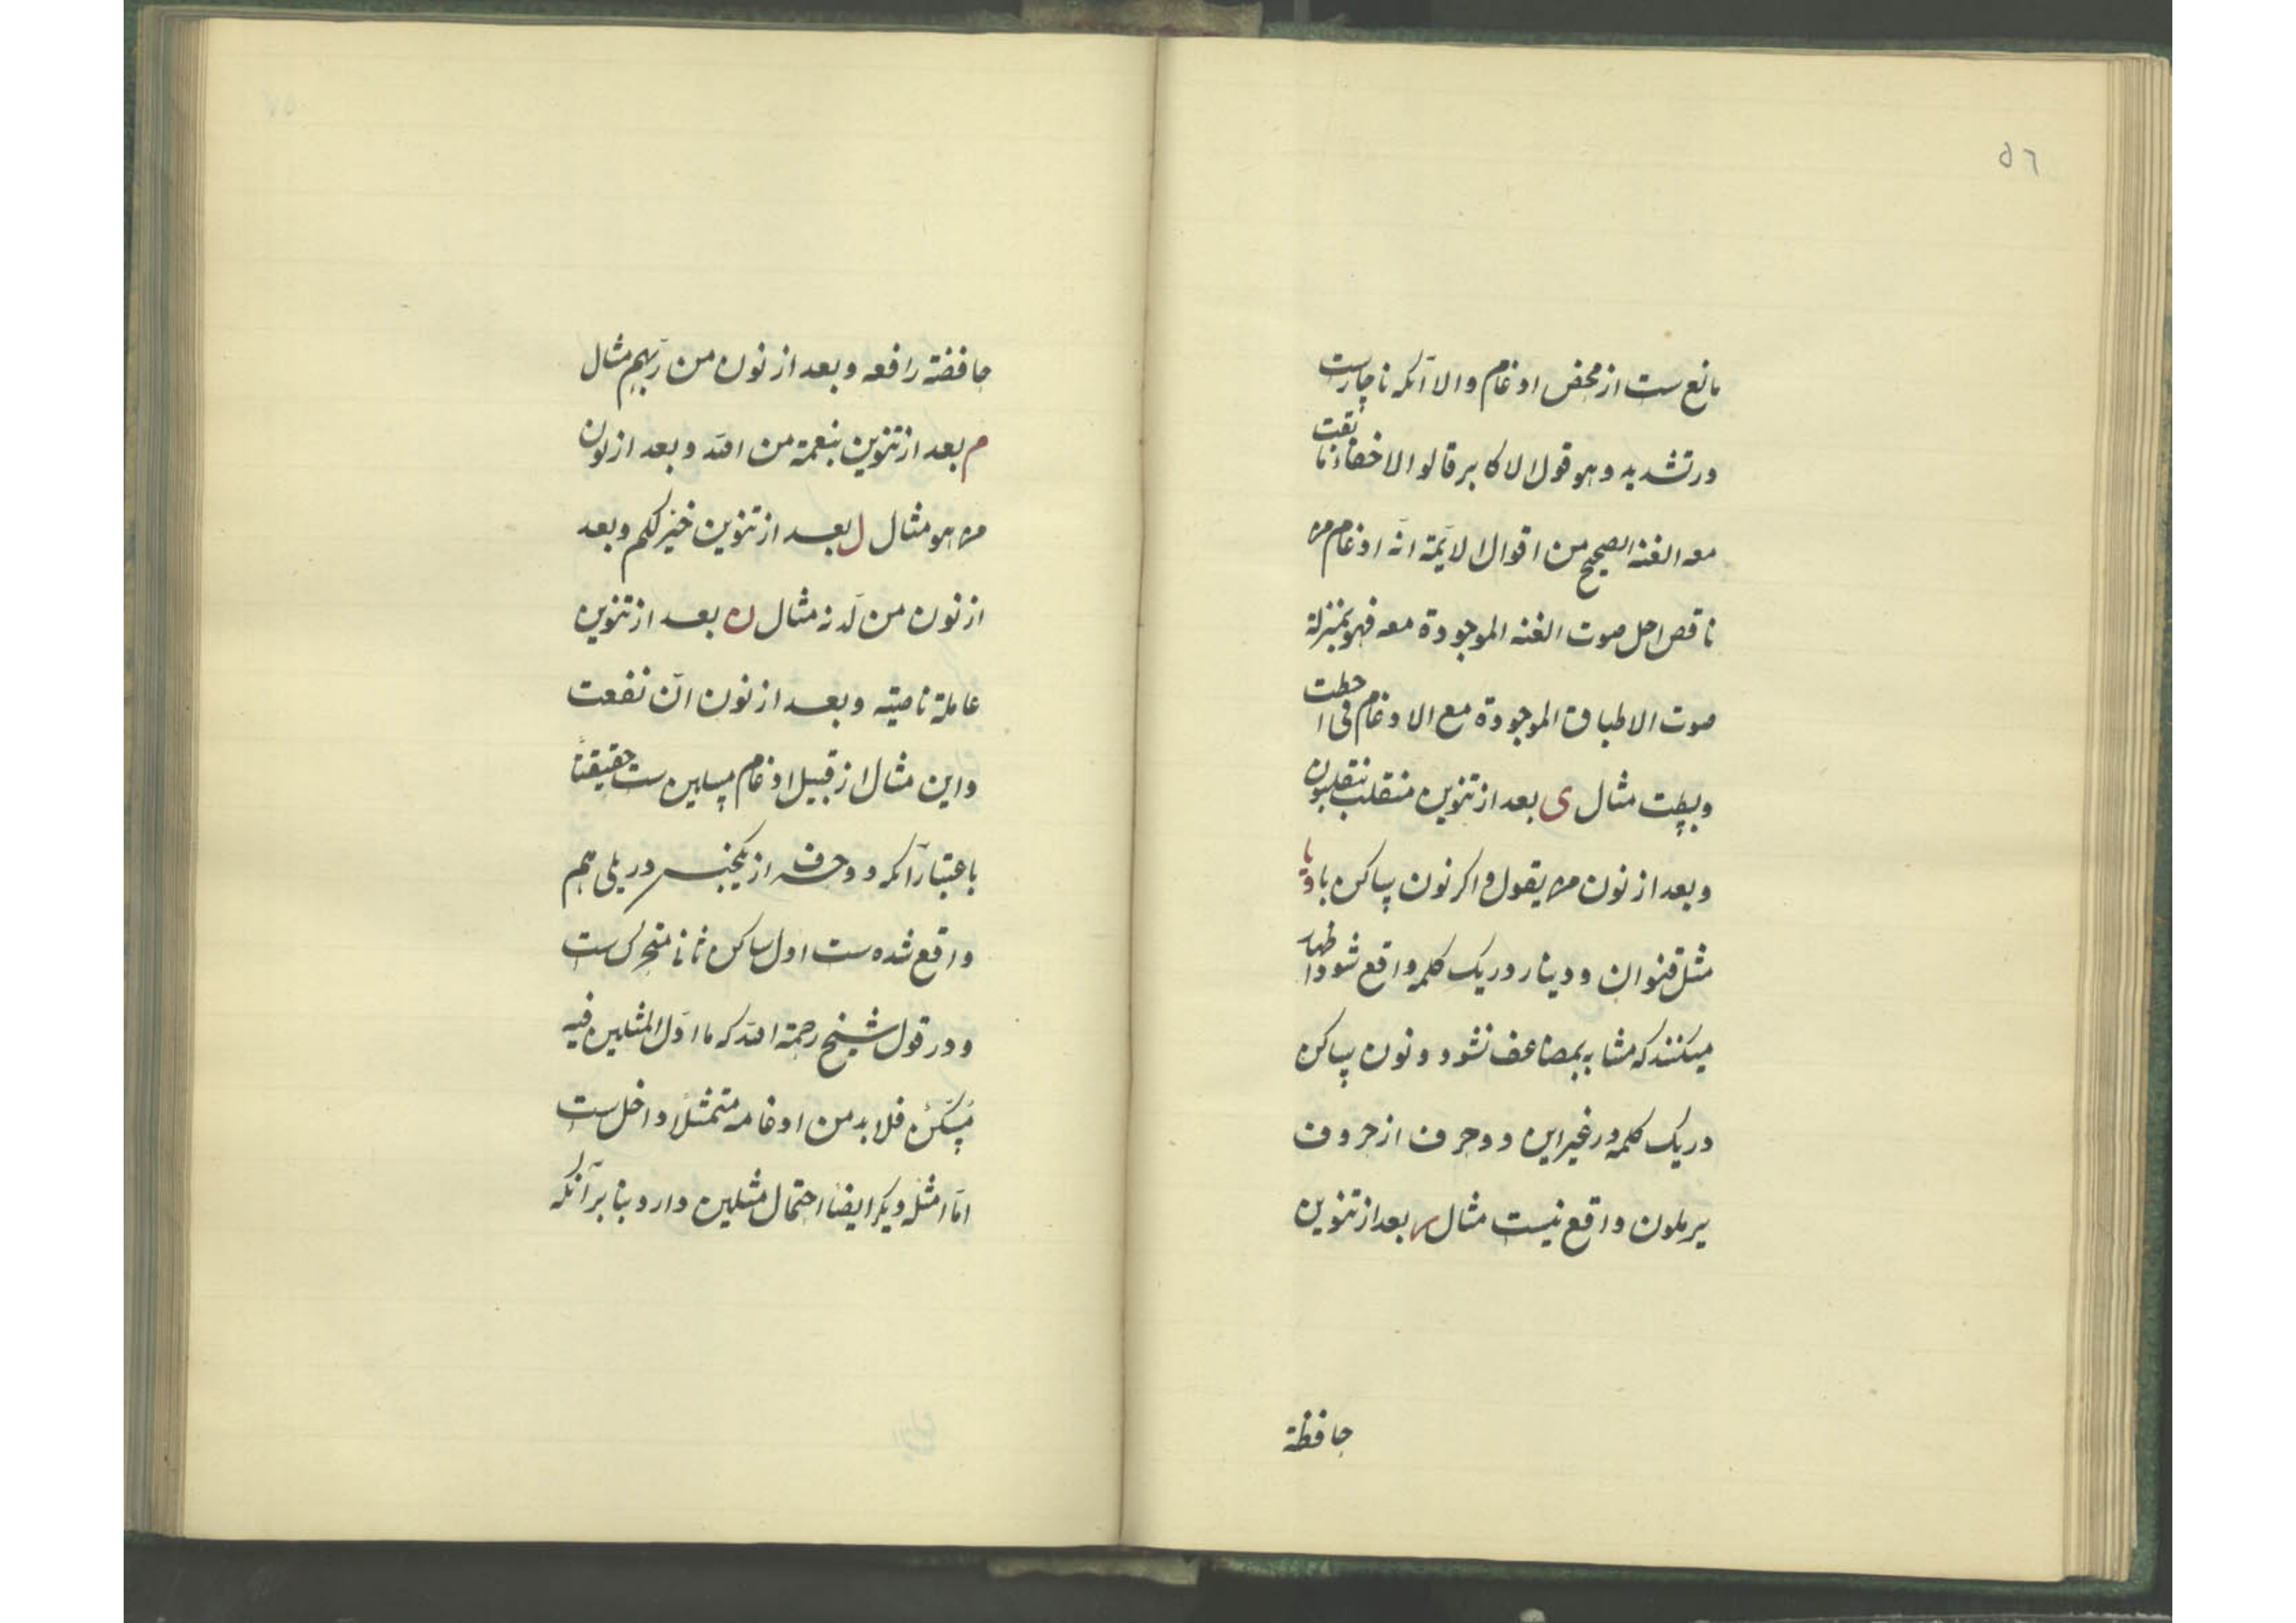 ٥٦
مانع ست از محض ادغام والا آنکه ناچارست
در تشدید و هو قول الاکابر قالوا الاخفاء ما بقت
معه الغنه الصحیح من اقوال الایمة انه ادغام
ناقص اجل صوت الغنه الموجودة معه فهو بمنزلة
صوت الاطباق الموجودة مع الادغام فی احطت
و بسطت مثال ی بعد از تنوین منقلب ینقلبون
و بعد از نون من یقول و اکر نون ساکن با و یا
مثل قنوان و دینار در یک کلمه واقع شود اظهار
میکنند که مشابه بمضاعف نشود و نون ساکن
در یک کلمه در غیر این دو حرف از حروف
یرملون واقع نیست مثال ر بعد از تنوین
حافظة
خافضة رافعه و بعد از نون من ربهم مثال
م بعد از تنوین بنعمة من الله و بعد از نون
من هو مثال ل بعد از تنوین خیر لکم و بعد
از نون من لدنه مثال ن بعد از تنوین
عاملة ناصبه و بعد از نون ان نفعت
و این مثال از قبیل ادغام مثلین ست حقیقتا
باعتبار آنکه دو حرف از یکجنس در پلی هم
واقع شده ست اول ساکن ثانا متحرک ست
و در قول شیخ رحمة الله که ما اول المثلین فیه
مسکن فلا بد من ادغامه متمثلا داخل ست
اما امثله دیکر ایضا احتمال مثلین دارد بنا بر آنکه